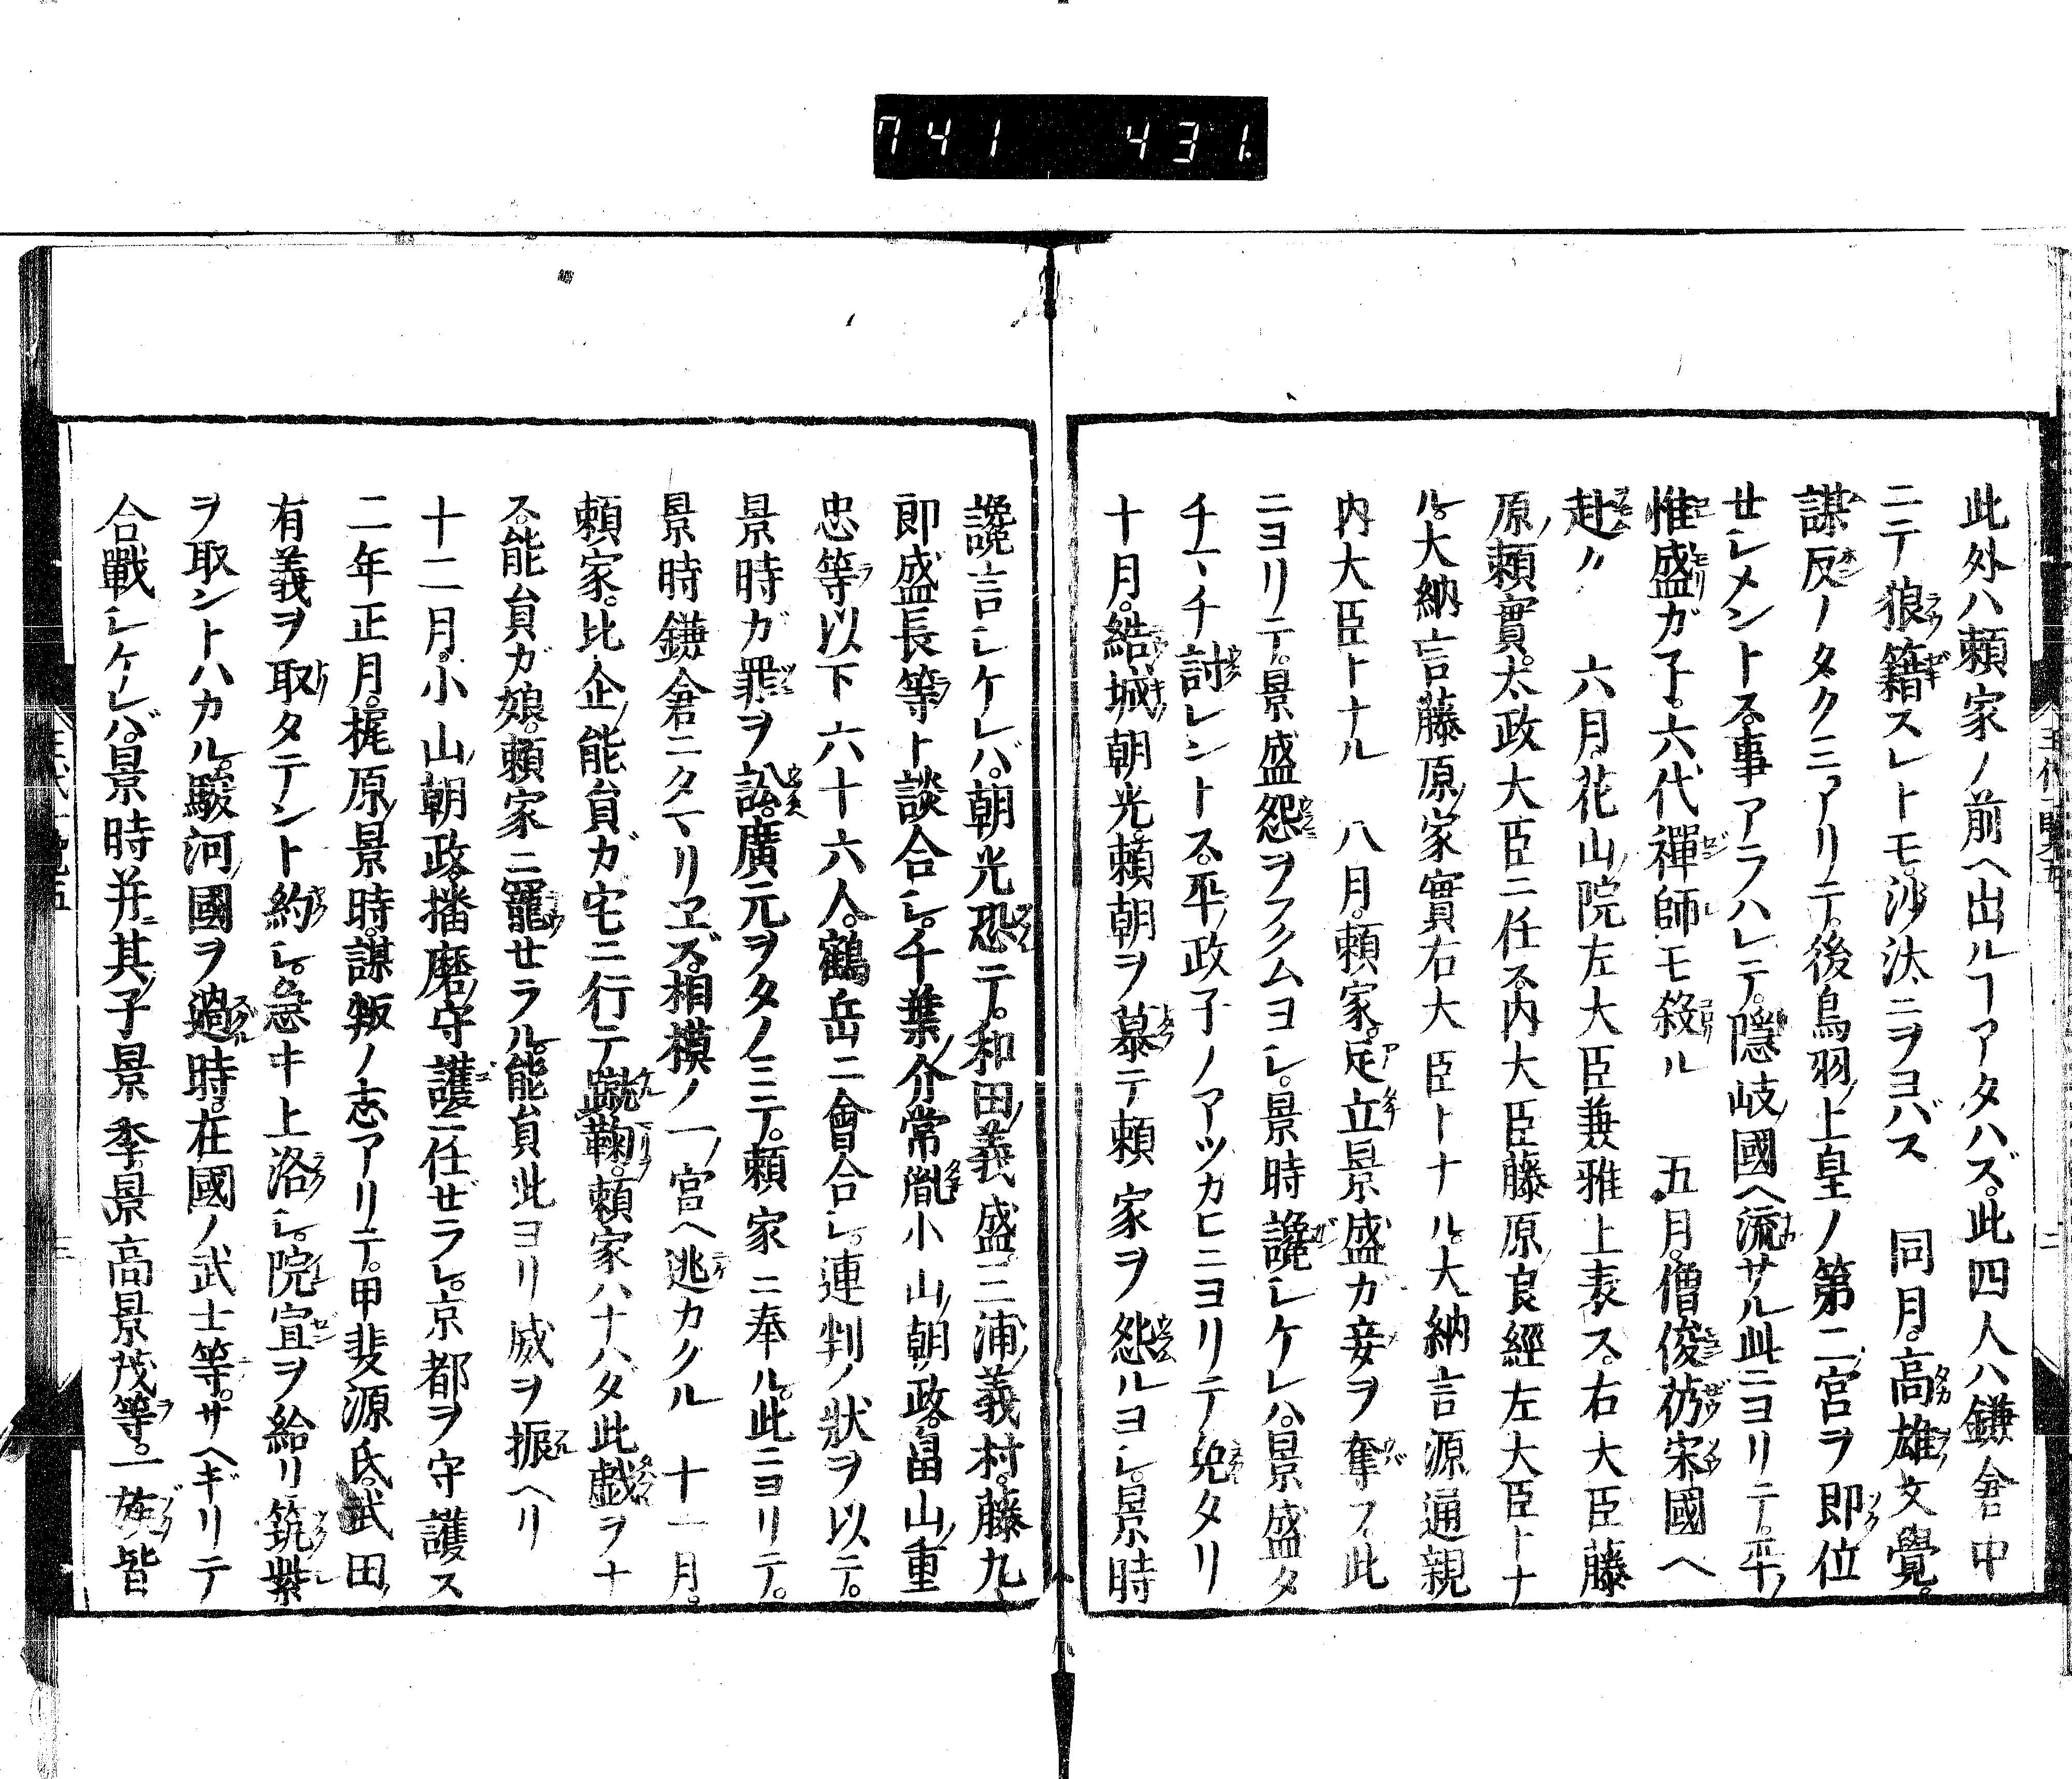 741 431.
此外ハ頼家ノ前ヘ出ルヿアタハズ。此四人ハ鎌倉中
ニテ狼籍スレトモ。沙汰ニヲヨバス 同月。高雄文覺。
謀反ノタクミアリテ。後鳥羽上皇ノ第二宮ヲ即位
せシメントス。事アラハレテ。隠岐國ヘ流サル。此ニヨリテ。平
惟盛ガ子。六代禪師モ殺ル 五月。僧俊芿宋國ヘ
赴ク 六月。花山院左大臣兼雅上表ス。右大臣藤
原頼實。太政大臣ニ任ス。内大臣藤原良經左大臣トナ
ル。大納言藤原家實右大臣トナル。大納言源通親
内大臣トナル 八月。頼家。足立景盛ガ妾ヲ奪フ。此
ニヨリテ。景盛怨ヲフクムヨシ。景時讒シケレハ。景盛タ
チマチ討レントス。平政子ノアツカヒニヨリテ免タリ
十月。結城朝光。頼朝ヲ慕テ頼家ヲ怨ルヨシ。景時
讒言シケレバ。朝光恐テ。和田義盛。三浦義村。藤九
郎盛長等ト談合シ。千葉介常胤小山朝政。畠山重
忠等以下六十六人。鶴岳ニ會合シ。連判ノ狀ヲ以テ。
景時ガ罪ヲ訟。廣元ヲタノミテ。頼家ニ奉ル。此ニヨリテ。
景時鎌倉ニタマリヱズ。相模ノ一宮ヘ逃カクル 十一月。
頼家。比企能員ガ宅ニ行テ蹴鞠。頼家ハナハダ此戯ヲナ
ス。能員ガ娘。頼家ニ寵せラル。能員此ヨリ威ヲ振ヘリ
十二月。小山朝政。播磨守護ニ任ぜラレ。京都ヲ守護ス
二年正月。梶原景時。謀叛ノ志アリテ。甲斐源氏。武田
有義ヲ取タテント約シ。急キ上洛シ。院宣ヲ給リ筑紫
ヲ取ントハカル。駿河國ヲ過時。在國ノ武士等。サヘギリテ
合戰シケレバ。景時并其子景季。景高景茂等。一族皆